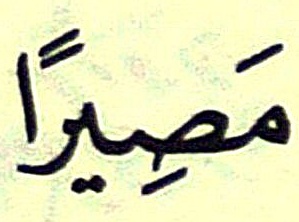 مَصِيرًا